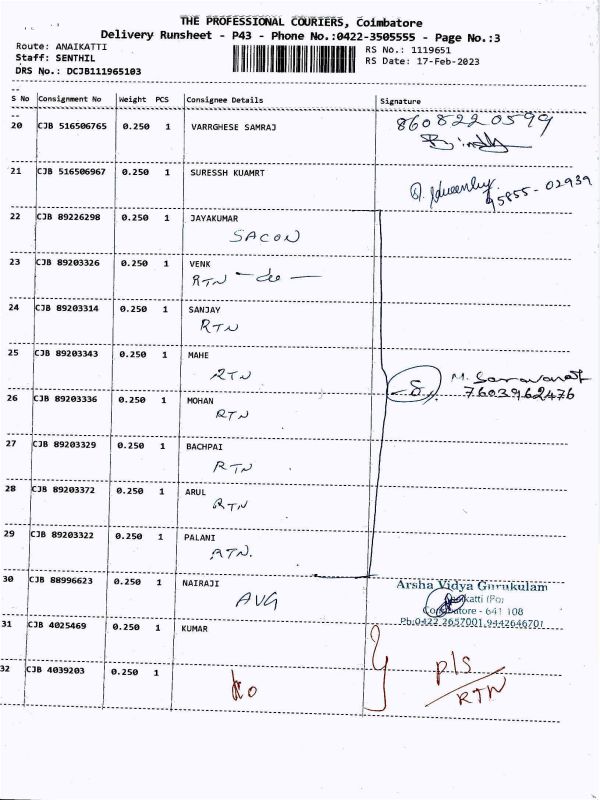 THE PROFESSIONAL COURIERS, Coimbatore
Delivery Runsheet - P43 - Phone No.:0422-3505555 - Page No.:3
Route: ANAIKATTI RS No.: 1119651
Staff: SENTHIL RS Date: 17-Feb-2023
DRS No.: DCJB111965103
S No Consignment No Weight PCS Consignee Details Signature
20 CJB 516506765 0.250 1 VARRGHESE SAMRAJ 8608220599
21 CJB 516506967 0.250 1 SURESSH KUAMRT
95855-02939
22 CJB 89226298 0.250 1 JAYAKUMAR
SACON
23 CJB 89203326 0.250 1 VENK
RTN - do -
24 CJB 89203314 0.250 1 SANJAY
RTN
25 CJB 89203343 0.250 1 MAHE
RTN
M. Saravanan
7603962476
26 CJB 89203336 0.250 1 MOHAN
RTN
27 CJB 89203329 0.250 1 BACHPAI
RTN
28 CJB 89203372 0.250 1 ARUL
RTN
29 CJB 89203322 0.250 1 PALANI
RTN.
30 CJB 88996623 0.250 1 NAIRAJI
AVG
Arsha Vidya Gurukulam
(Po)
- 641 108
Ph:0422 2657001, 9442646701
31 CJB 4025469 0.250 1 KUMAR
32 CJB 4039203 0.250 1
pls
RTN